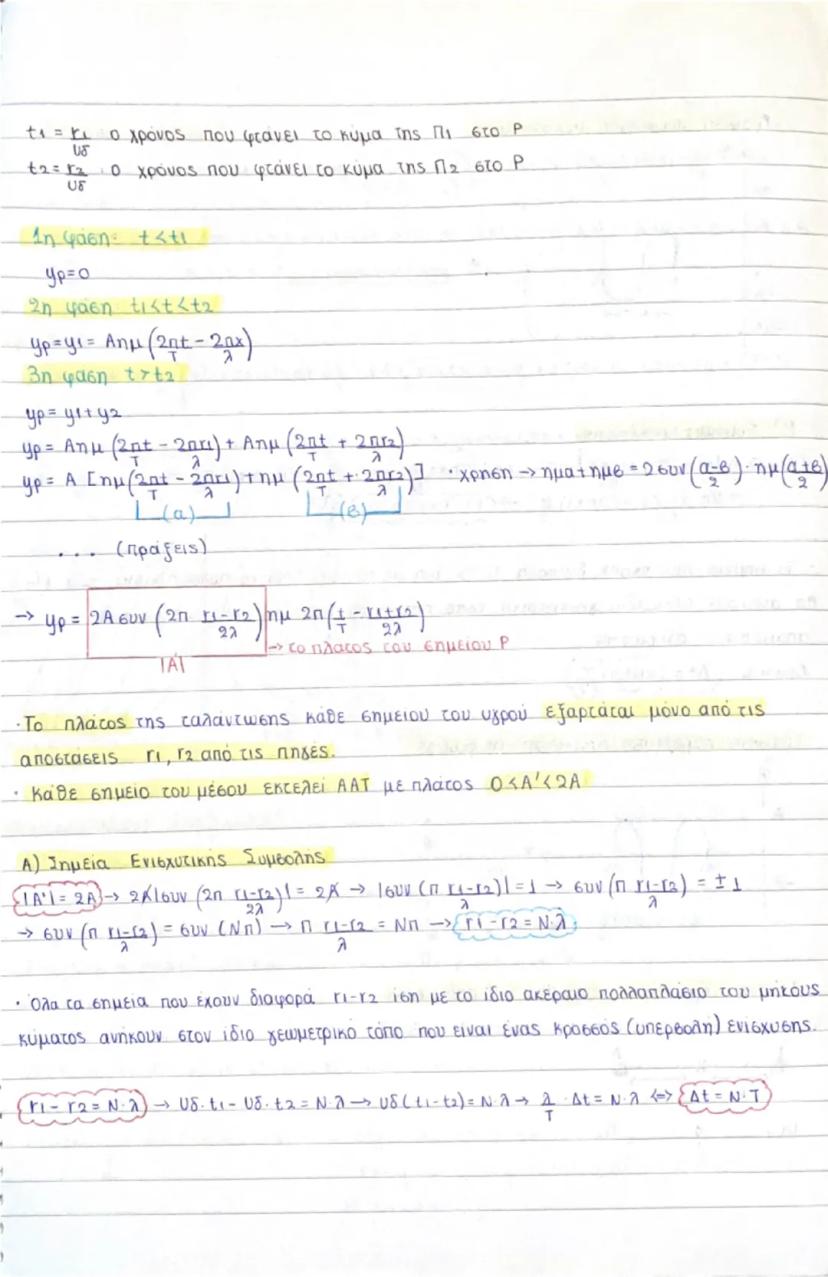 t1 = r1/υδ ο χρόνος που φτάνει το κύμα της Π1 στο Ρ
t2 = r2/υδ ο χρόνος που φτάνει το κύμα της Π2 στο Ρ
1η φάση: t<t1
yp=0
2η φάση t1<t<t2
yp=y1= Αημ (2πt/T - 2πx/λ)
3η φάση t>t2
yp= y1+y2
yp= Αημ (2πt/T - 2πr1/λ) + Αημ (2πt/T + 2πr2/λ)
yp= A [ημ(2πt/T - 2πr1/λ)+ημ (2πt/T + 2πr2/λ)] · χρηση → ημα+ημβ = 2συν(α-β/2)· ημ(α+β/2)
(α) (β)
.... (πράξεις)
→ yp = 2Aσυν (2π r1-r2/2λ) ημ 2π(t/T - r1+r2/2λ)
|A'| → το πλατος του σημείου Ρ
· Το πλάτος της ταλάντωσης κάθε σημειου του υγρού εξαρτάται μόνο από τις
αποστάσεις r1, r2 από τις πηγές.
· κάθε σημείο του μέσου εκτελεί ΑΑΤ με πλάτος 0<A'<2A
Α) Σημεία Ενισχυτικής Συμβολής
|A'|= 2A → 2A|συν (2π r1-r2/2λ)| = 2A → |συν (π r1-r2/λ)|=1 → συν (π r1-r2/λ) = ±1
→ συν (π r1-r2/λ) = συν (Νπ) → π r1-r2/λ = Νπ → r1-r2 = Ν·λ
· Όλα τα σημεία που έχουν διαφορά r1-r2 ίση με το ίδιο ακέραιο πολλαπλάσιο του μήκους
κύματος ανήκουν στον ίδιο γεωμετρικό τόπο που είναι ένας κροσσός (υπερβολή) ενίσχυσης.
r1-r2 = Ν·λ → υδ·t1 - υδ·t2 = Ν·λ → υδ(t1-t2) = Ν·λ → λ/T · Δt = Ν·λ <=> Δt = Ν·T